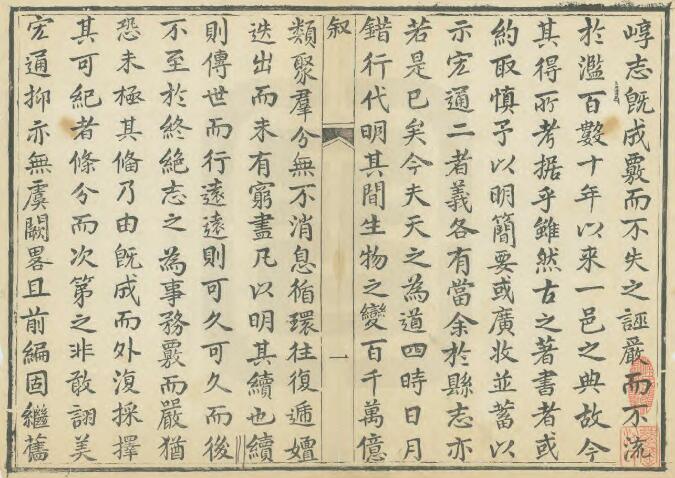 崞志旣成覈而不失之誣嚴而不流
於濫百數十年以來一邑之典故今
其得所考据乎雖然古之著書者或
約取慎予以明簡要或廣收並蓄以
示宏通二者義各有當余於縣志亦
若是已矣今夫天之為道四時日月
錯行代明其間生物之變百千萬億
叙
一
類聚羣分無不消息循環往復遞嬗
迭出而未有窮盡凡以明其續也續
則傳世而行遠遠則可久可久而後
不至於終絶志之為事務覈而嚴猶
恐未極其俻乃由旣成而外復採擇
其可紀者條分而次第之非敢詡美
宏通抑亦無虞闕畧且前編固繼舊